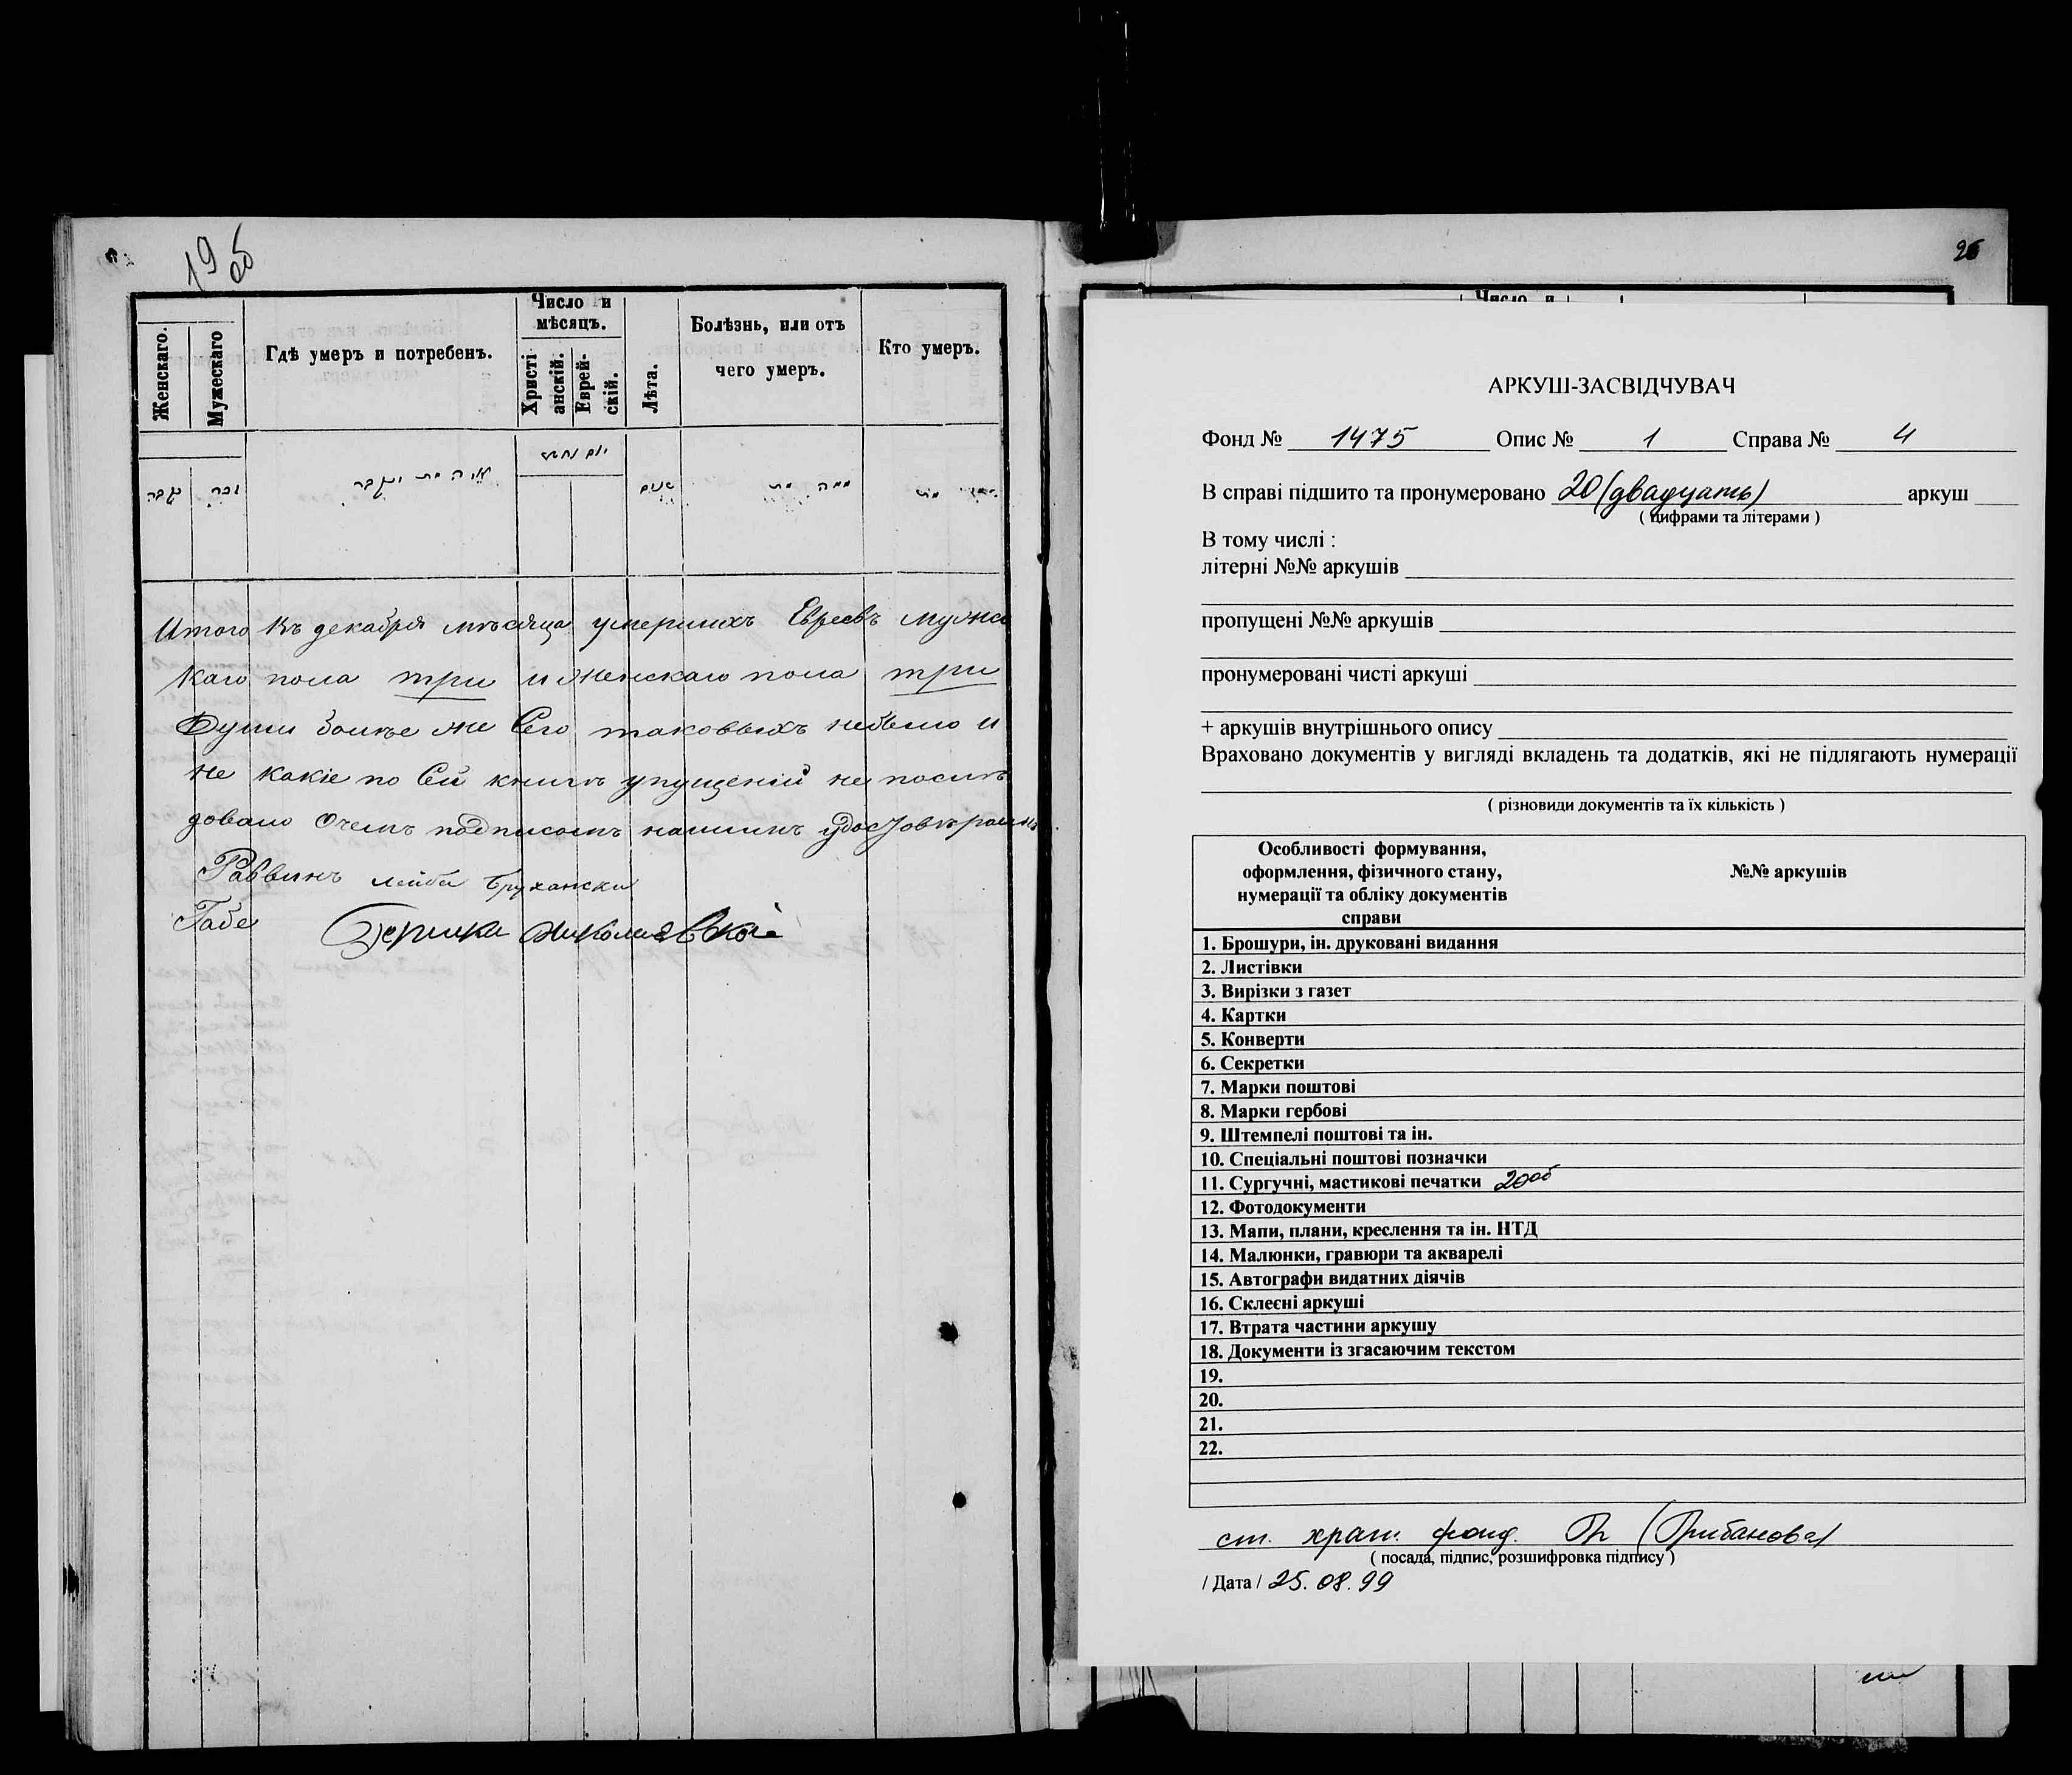 19 об
Женскаго.
Мужескаго
Гдѣ умеръ и погребенъ.
Число и
мѣсяцъ.
Христі
анскій.
Еврей-
скій.
Лѣта.
Болѣзнь, или отъ
чего умеръ.
Кто умеръ.
Итого Въ декабря мѣсяца умершихъ Евреевъ мужс
каго пола три и женскаго пола три
Души болѣе же Сего таковыхъ небыло и
не какіе по Сей книгѣ упущеній не послѣ
довало Очемъ подписомъ нашимъ удостовѣраемъ
Раввинъ Лейба
Габе
26
Число и
АРКУШ-ЗАСВІДЧУВАЧ
Фонд № 1475 Опис № 1 Справа № 4
В справі підшито та пронумеровано 20 (двадцать) аркуш
( цифрами та літерами )
В тому числі :
літерні №№ аркушів
пропущені №№ аркушів
пронумеровані чисті аркуші
+ аркушів внутрішнього опису
Враховано документів у вигляді вкладень та додатків, які не підлягають нумерації
( різновиди документів та їх кількість )
Особливості формування,
оформлення, фізичного стану,
нумерації та обліку документів
справи
№№ аркушів
1. Брошури, ін. друковані видання
2. Листівки
3. Вирізки з газет
4. Картки
5. Конверти
6. Секретки
7. Марки поштові
8. Марки гербові
9. Штемпелі поштові та ін.
10. Спеціальні поштові позначки
11. Сургучні, мастикові печатки 20об
12. Фотодокументи
13. Мапи, плани, креслення та ін. НТД
14. Малюнки, гравюри та акварелі
15. Автографи видатних діячів
16. Склеєні аркуші
17. Втрата частини аркушу
18. Документи із згасаючим текстом
19.
20.
21.
22.
ст. хран. фонд. (Грибанова)
( посада, підпис, розшифровка підпису )
/ Дата / 25.08.99